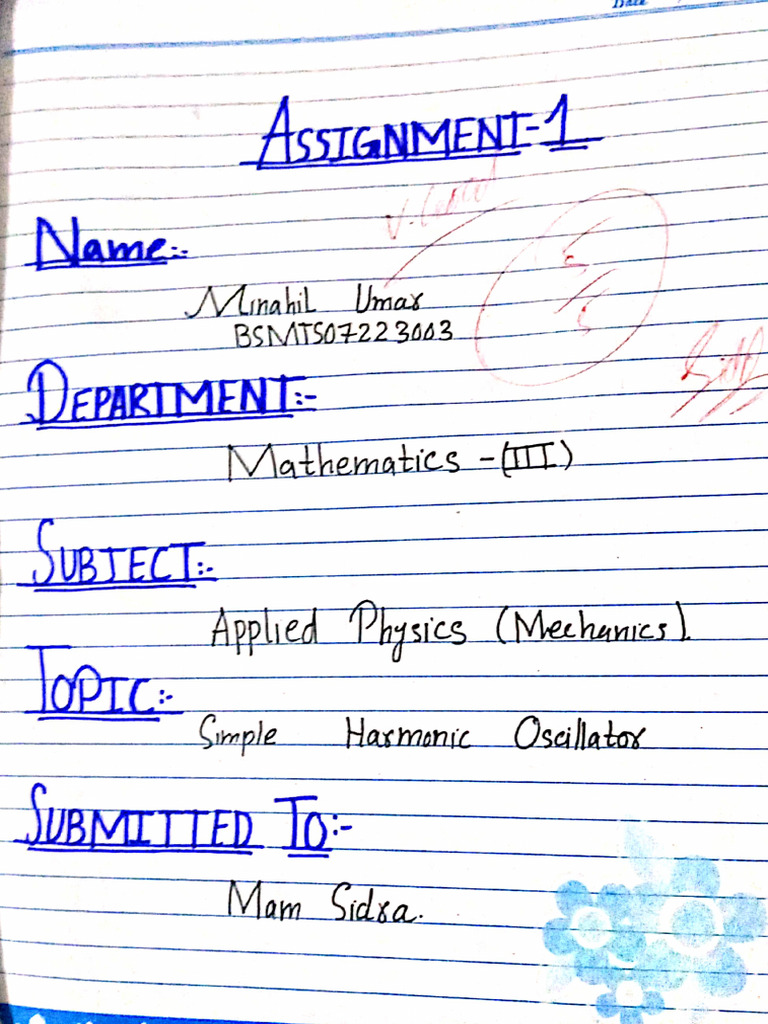 Date
ASSIGNMENT-1
Name:-
V. Good
Minahil Umar
5/5
BSMTS07223003
DEPARTMENT:-
Mathematics - (III)
SUBJECT:-
Applied Physics (Mechanics).
TOPIC:-
Simple Harmonic Oscillator
SUBMITTED TO:-
Mam Sidra.